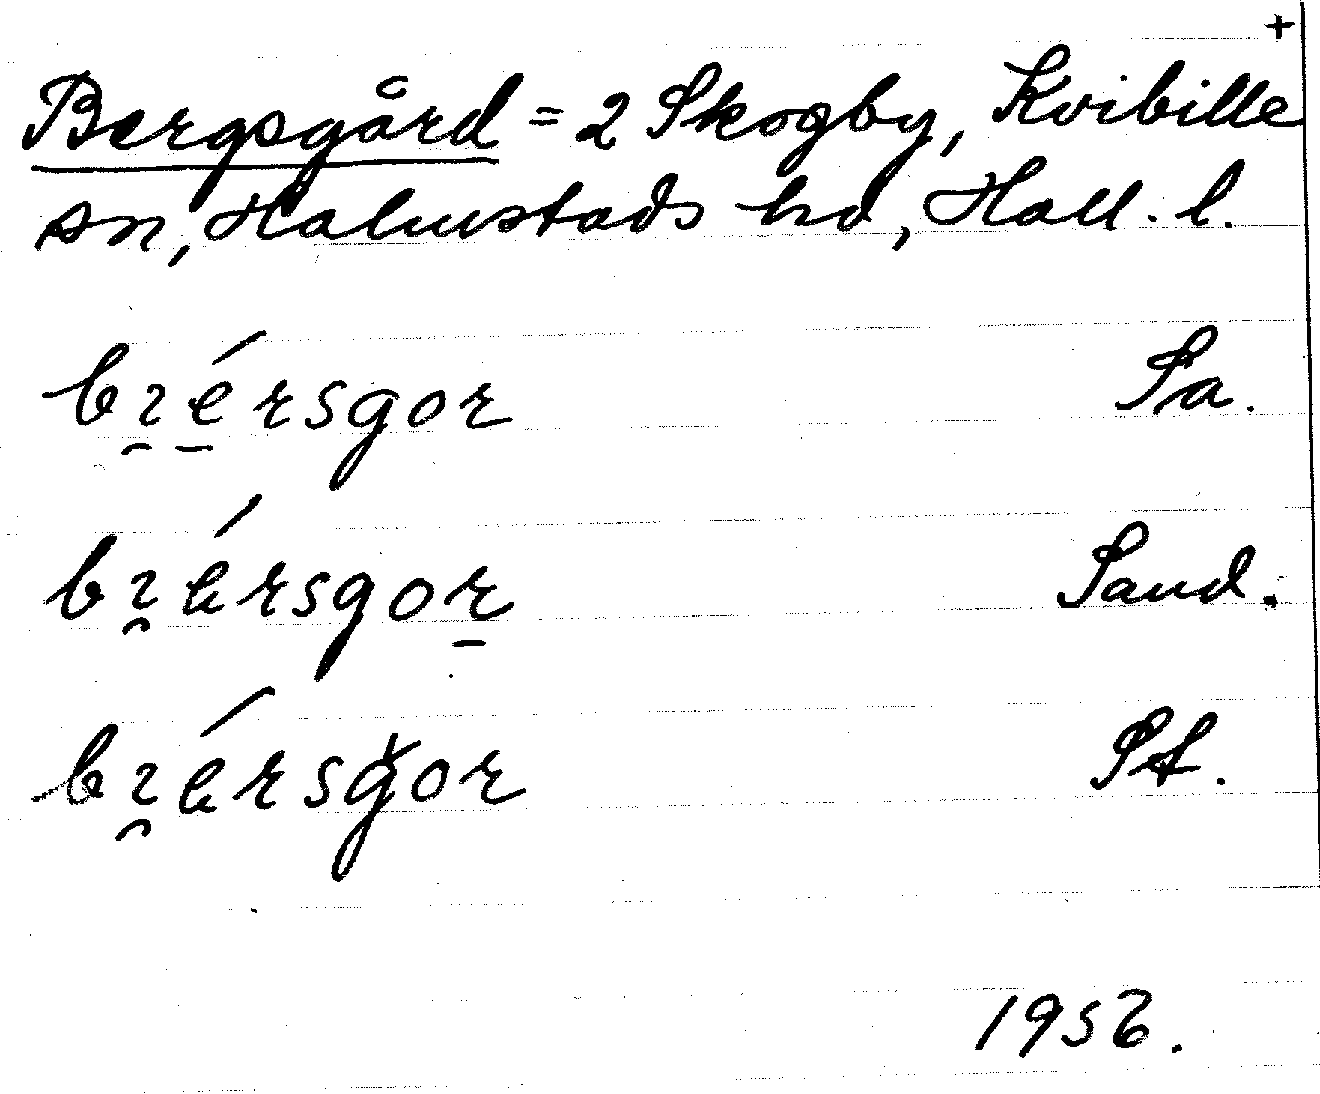 +
Bergsgård = 2 Skogby, Kvibille
sn, Halmstads hd, Hall. l.
bɿérsgor Sa.
bɿérsgor Sand.
bɿérsgor St.
1956.